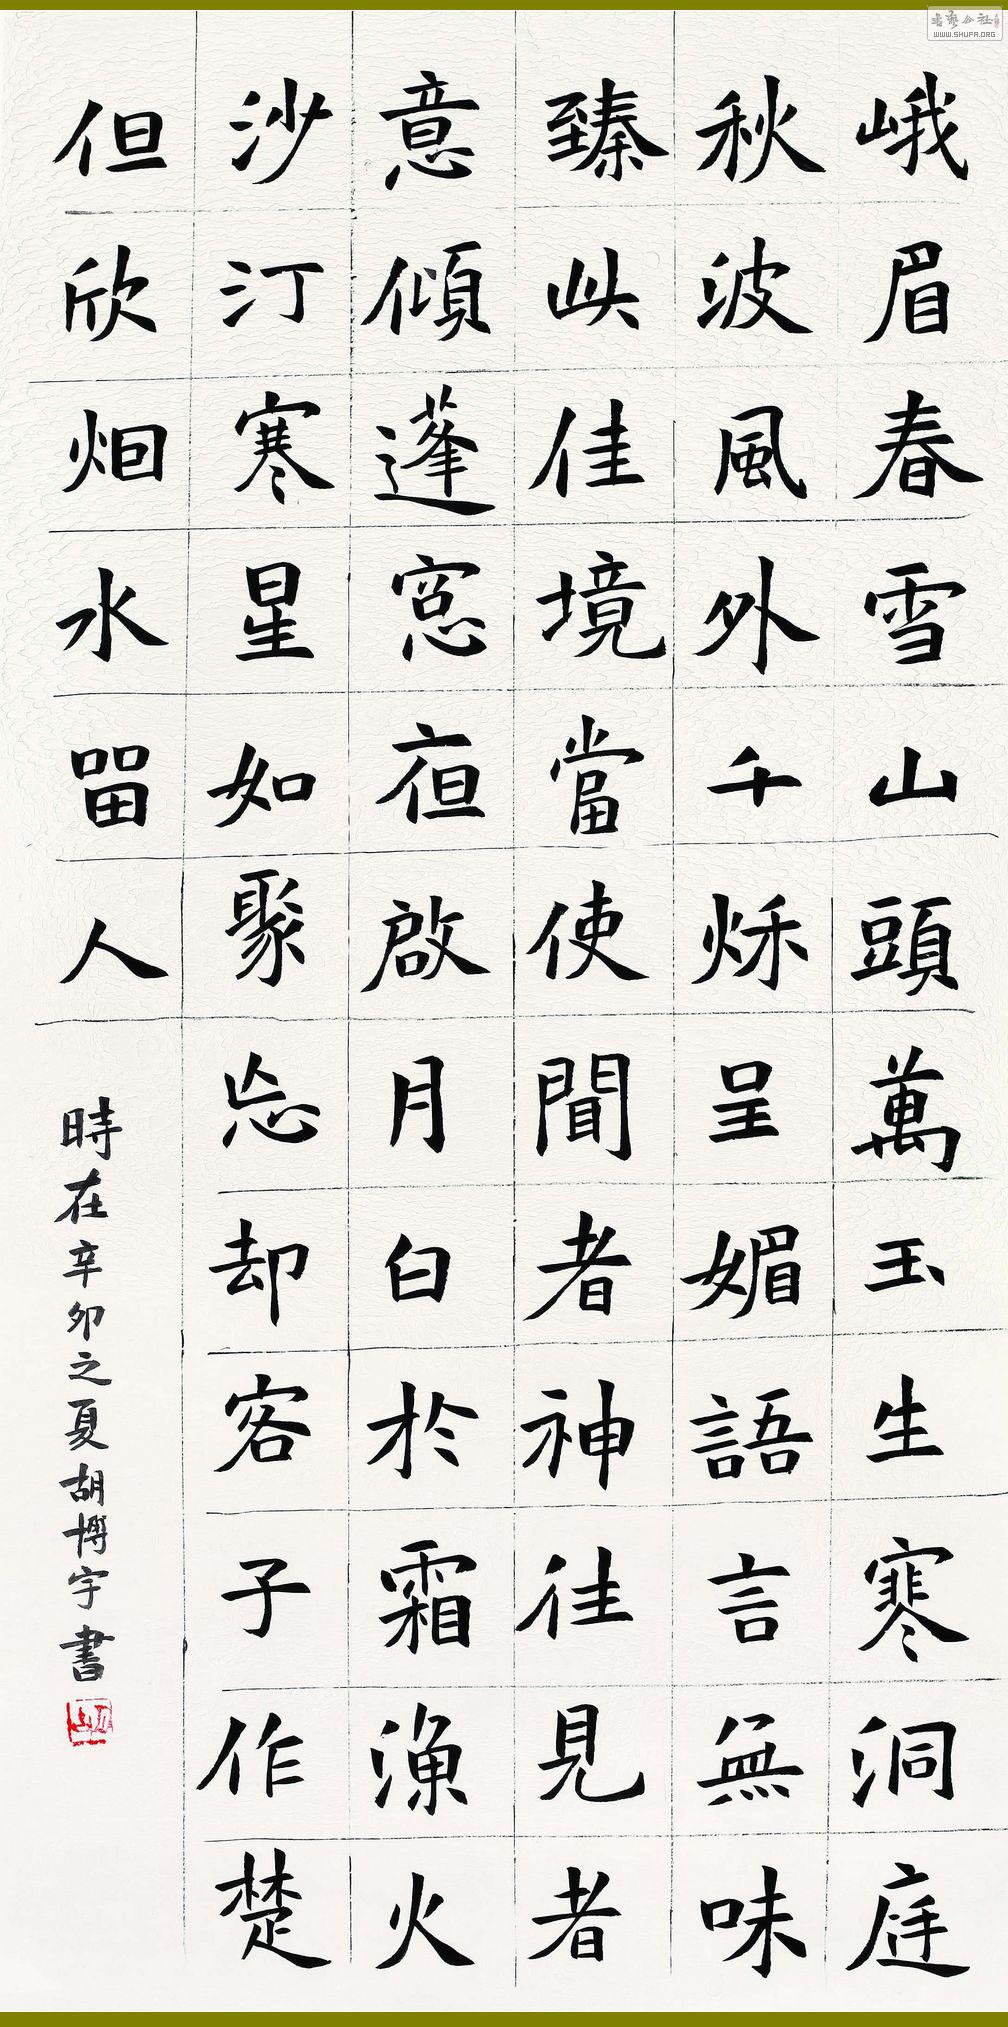 峨眉春雪山頭萬玉生寒洞庭
秋波風外千烁呈媚語言無味
臻此佳境當使聞者神往見者
意傾蓬窓夜啟月白於霜漁火
沙汀寒星如聚忘却客子作楚
但欣烟水留人
時在辛卯之夏胡博宇書
書藝公社
WWW.SHUFA.ORG